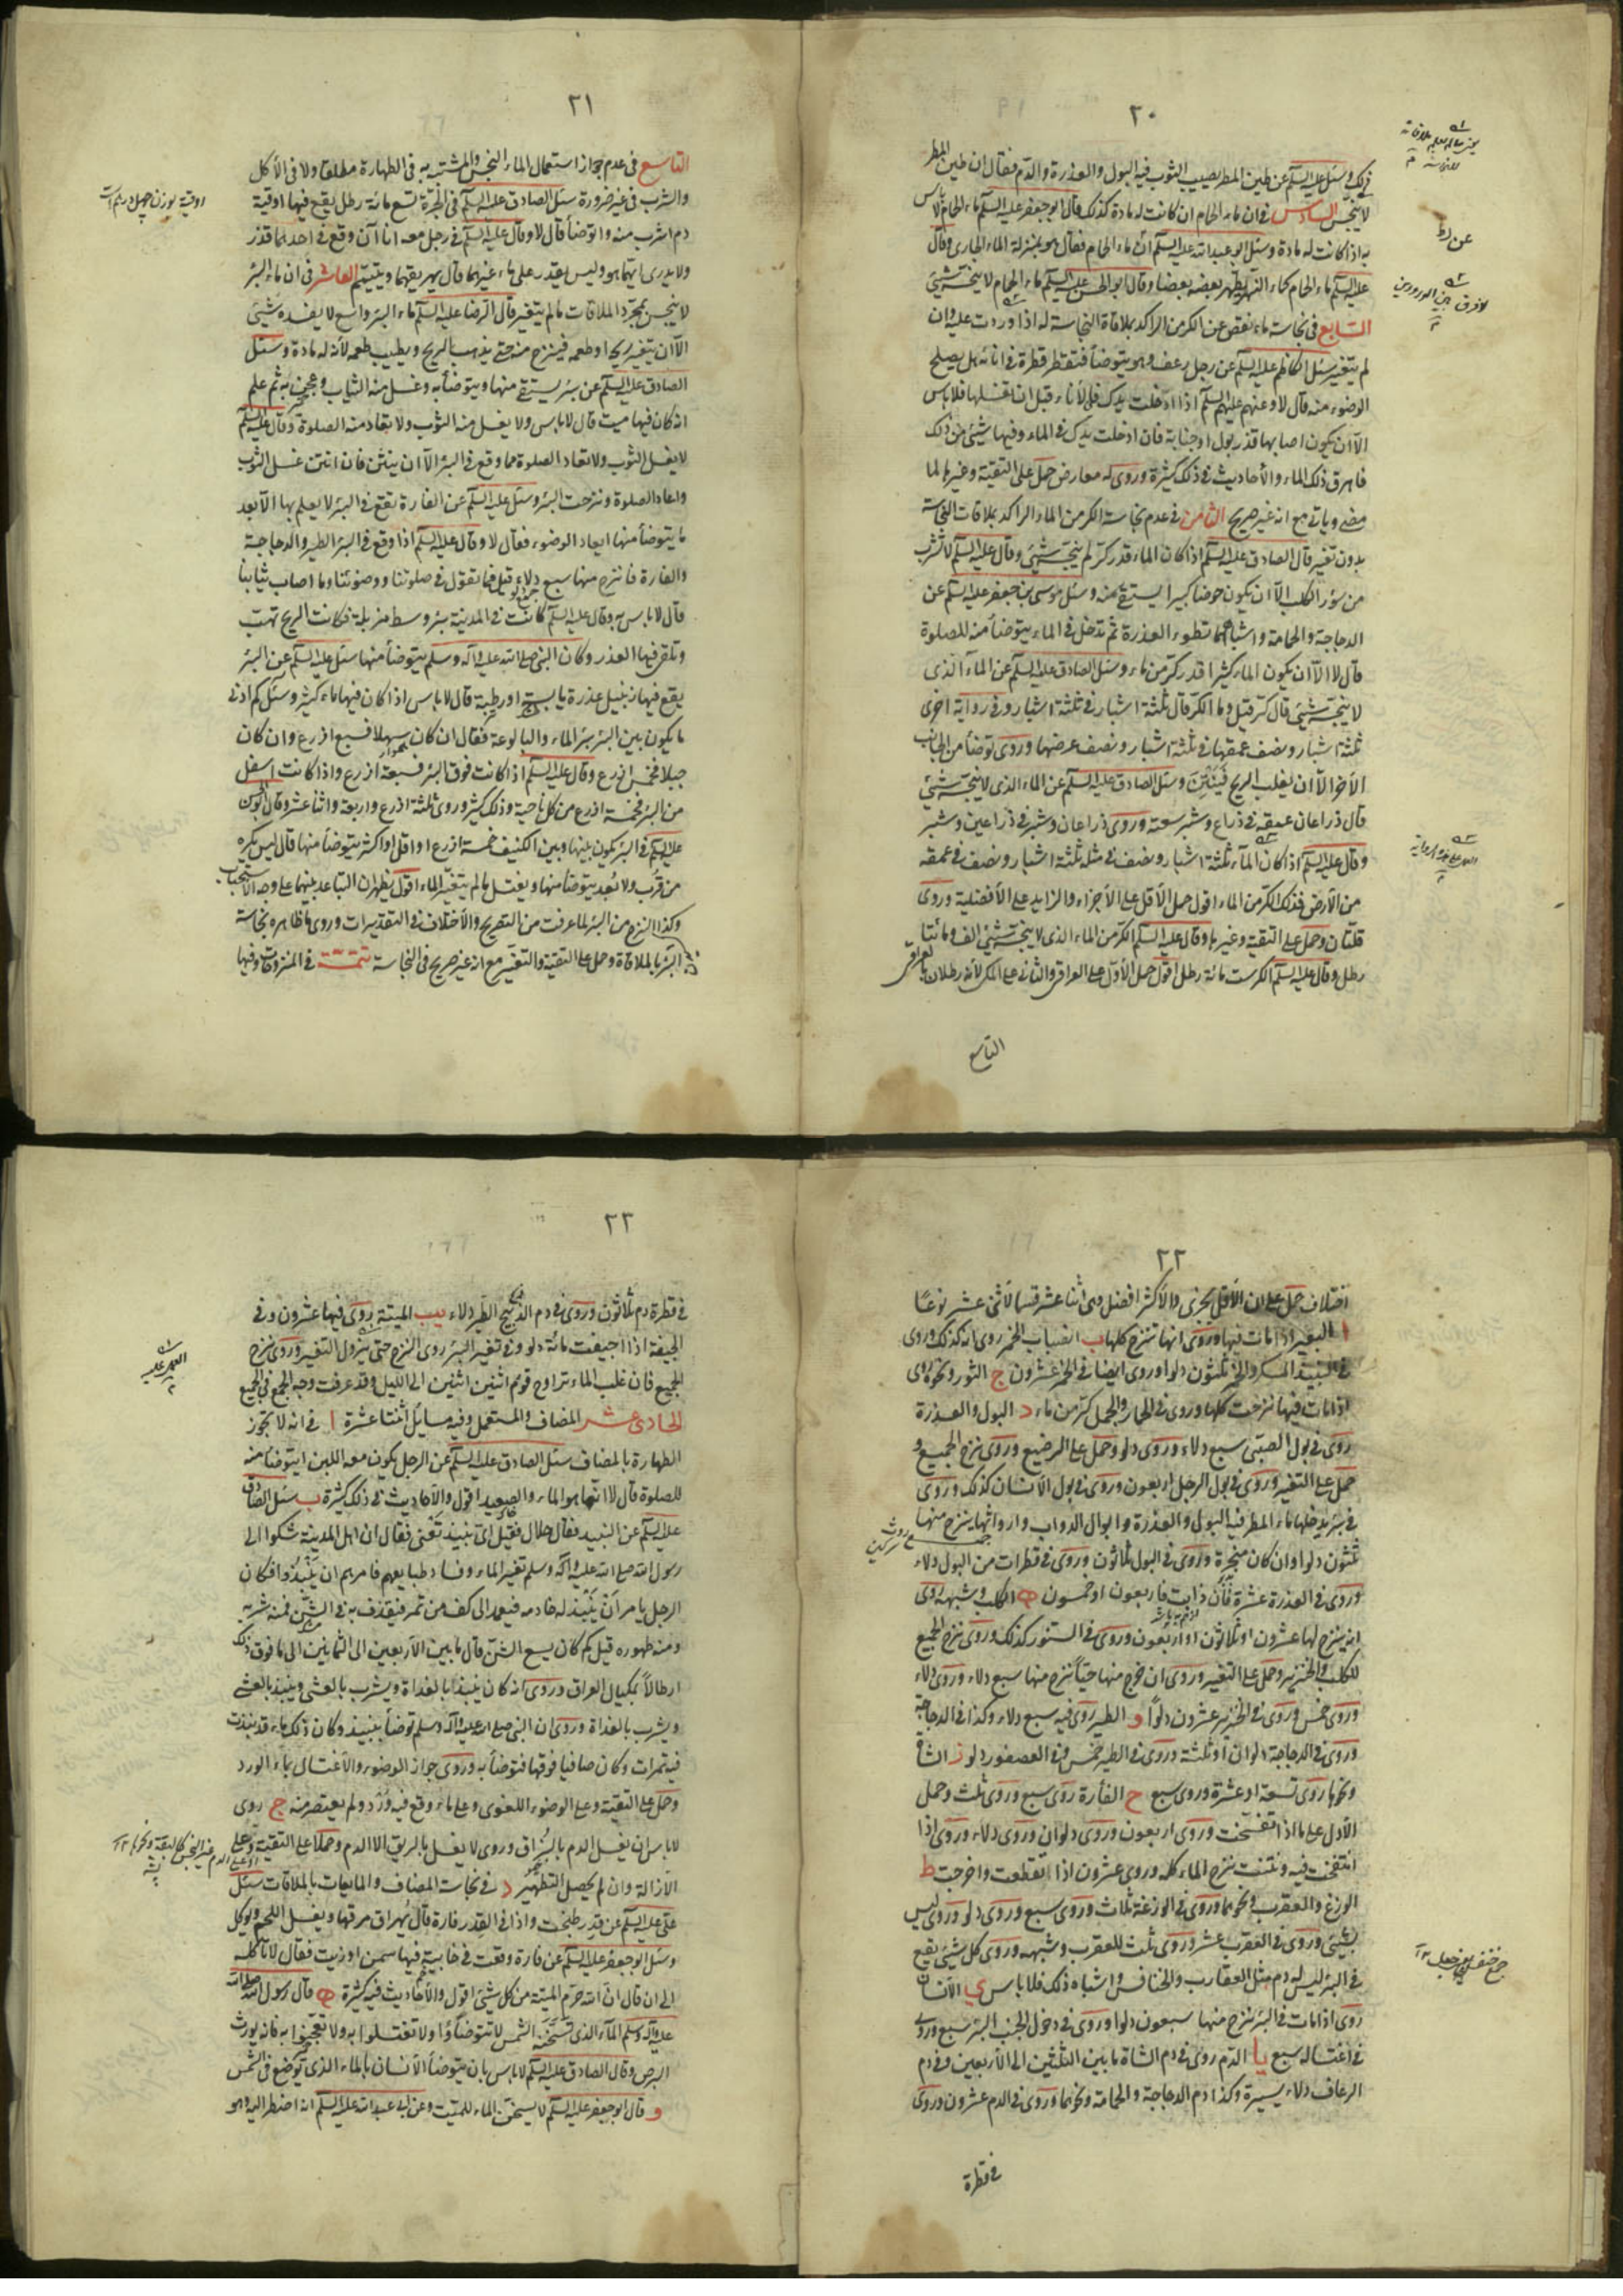 ٢٠
ذلك وسئل عليه السلم عن طين المطر يصيب الثوب فيه البول والعذرة والدم فقال ان طين المطر
لا ينجس السادس في ان ماء الحمام ان كانت له مادة كذلك قال ابو جعفر عليه السلم ماء الحمام لا باس
به اذا كانت له مادة وسئل ابو عبد الله عليه السلم ان ماء الحمام فقال هو بمنزلة الماء الجارى وقال
عليه السلم ماء الحمام كماء النهر يطهر بعضه بعضا وقال ابو الحسن عليه السلم ماء الحمام لا ينجسه شيئ
السابع في نجاسة ماء نقص عن الكر من الراكد بملاقاة النجاسة له اذا وردت عليه وان
لم يتغير سئل الكاظم عليه السلم عن رجل رعف وهو يتوضأ فتقطر قطرة في انائه هل يصلح
الوضوء منه قال لا وعنهم عليهم السلم اذا ادخلت يدك في الاناء قبل ان تغسلها فلا باس
الا ان يكون اصابها قذر بول او جنابة فان ادخلت يدك في الماء وفيها شيئ من ذلك
فاهرق ذلك الماء والأحاديث في ذلك كثيرة وروى له معارض حمل على التقية وغيرها لما
مضى وياتى مع انه غير صريح الثامن في عدم نجاسة الكر من الماء الراكد بملاقات النجاسة
بدون تغير قال الصادق عليه السلم اذا كان الماء قدر كر لم ينجسه شيئ وقال عليه السلم لا تشرب
من سؤر الكلب الا ان يكون حوضا كبيرا يستقى منه وسئل موسى بن جعفر عليه السلم عن
الدجاجة والحمامة واشباههما تطوء العذرة ثم تدخل في الماء يتوضأ منه للصلوة
قال لا الا ان يكون الماء كثيرا قدر كر من ماء وسئل الصادق عليه السلم عن الماء الذى
لا ينجسه شيئ قال كر قيل وما الكر قال ثلثة اشبار في ثلثة اشبار وفي رواية اخرى
ثلثة اشبار ونصف عمقها في ثلثة اشبار ونصف عرضها وروى توضأ من الجانب
الاخر الا ان يغلب الريح فينتن وسئل الصادق عليه السلم عن الماء الذى لا ينجسه شيئ
قال ذراعان عمقه في ذراع وشبر سعته وروى ذراعان وشبر في ذراعين وشبر
وقال عليه السلم اذا كان الماء ثلثة اشبار ونصف في مثله ثلثة اشبار ونصف في عمقه
من الأرض فذلك الكر من الماء اقول حمل الأقل على الأجزاء والزايد على الأفضلية وروى
قلتان وحمل على التقية وغيرها وقال عليه السلم الكر من الماء الذى لا ينجسه شيئ الف ومائتا
رطل وقال عليه السلم الكر ست مائة رطل اقول حمل الأول على العراقى والثانى على المكى لأنه رطلان بالعراقى
التاسع
لا فرق بين الورودين
٢١
التاسع في عدم جواز استعمال الماء النجس والمشتبه به في الطهارة مطلقا ولا في الأكل
والشرب في غير ضرورة سئل الصادق عليه السلم في الجرة تسع مائة رطل يقع فيها اوقية
دم اشرب منه واتوضأ قال لا وقال عليه السلم في رجل معه اناآن وقع في احدهما قذر
ولا يدرى ايهما هو وليس يقدر على ماء غيرهما قال يهريقهما ويتيمم العاشر في ان ماء البئر
لا ينجس بمجرد الملاقات ما لم يتغير قال الرضا عليه السلم ماء البئر واسع لا يفسده شيئ
الا ان يتغير ريحه او طعمه فينزح منه حتى يذهب الريح ويطيب طعمه لأنه له مادة وسئل
الصادق عليه السلم عن بئر يستقى منها ويتوضأ به وغسل منه الثياب وعجن به ثم علم
انه كان فيها ميت قال لا باس ولا يغسل منه الثوب ولا تعاد منه الصلوة وقال عليه السلم
لا يغسل الثوب ولا تعاد الصلوة مما وقع في البئر الا ان ينتن فان انتن غسل الثوب
واعاد الصلوة ونزحت البئر وسئل عليه السلم عن الفارة تقع في البئر لا يعلم بها الا بعد
ما يتوضأ منها ايعاد الوضوء فقال لا وقال عليه السلم اذا وقع في البئر الطير والدجاجة
والفارة فانزح منها سبع دلاء قيل فما تقول في صلوتنا ووضوئنا وما اصاب ثيابنا
قال لا باس به وقال عليه السلم كانت في المدينة بئر وسط مزبلة فكانت الريح تهب
وتلقى فيها العذر وكان النبى صلى الله عليه وآله وسلم يتوضأ منها سئل عليه السلم عن البئر
يقع فيها زنبيل عذرة يابسة او رطبة قال لا باس اذا كان فيها ماء كثير وسئل كم ادنى
ما يكون بين البئر بئر الماء والبالوعة فقال ان كان سهلا فسبع اذرع وان كان
جبلا فخمس اذرع وقال عليه السلم اذا كانت فوق البئر فسبعة اذرع واذا كانت اسفل
من البئر فخمسة اذرع من كل ناحية وذلك كثير وروى ثلثة اذرع واربعة واثنا عشر وقال ابو الحسن
عليه السلم في البئر يكون بينها وبين الكنيف خمسة اذرع او اقل او اكثر يتوضأ منها قال ليس يكره
من قرب ولا بعد يتوضأ منها ويغتسل ما لم يتغير الماء اقول يظهر ان التباعد بينهما على وجه الأستحباب
وكذا النزح من البئر لما عرفت من التصريح والأختلاف في التقديرات وروى ما ظاهره نجاسة
البئر بالملاقاة وحمل على التقية والتغير مع انه غير صريح في النجاسة تتمة في المنزوحات وفيها
اوقية بوزن چهل درهم است
٢٢
اختلاف حمل على ان الأقل يجزى والأكثر افضل وهى اثنا عشر قسما لأثنى عشر نوعا
ا البعير اذا مات فيها وروى انها تنزح كلها ب انصباب الخمر روى انه كذلك وروى
في النبيذ المسكر والخمر ثلثون دلوا وروى ايضا في الخمر عشرون ج الثور ونحوه روى
اذا مات فيها نزحت كلها وروى في الحمار والجمل كر من ماء د البول والعذرة
روى في بول الصبى سبع دلاء وروى دلو وحمل على الرضيع وروى نزح الجميع و
حمل على التغير وروى في بول الرجل اربعون وروى في بول الأنسان كذلك وروى
في بئر يدخلها ماء المطر فيه البول والعذرة وابوال الدواب وارواثها ينزح منها
ثلثون دلوا وان كان مبخرة وروى في البول ثلاثون وروى في قطرات من البول دلاء
وروى في العذرة عشرة فان ذابت فاربعون او خمسون ه الكلب وشبهه روى
انه ينزح لها عشرون او ثلاثون او اربعون وروى في السنور كذلك وروى نزح الجميع
للكلب والخنزير وحمل على التغير وروى ان خرج منها حيا نزح منها سبع دلاء وروى دلاء
وروى خمس وروى في الخنزير عشرون دلوا و الطير روى فيه سبع دلاء وكذا في الدجاجة
وروى في الدجاجة دلوان او ثلثة وروى في الطير خمس وفي العصفور دلو ز الشاة
ونحوها روى تسعة او عشرة وروى سبع ح الفأرة روى سبع وروى ثلث وحمل
الأول على ما اذا تفسخت وروى اربعون وروى دلوان وروى دلاء وروى اذا
انتفخت فيه ونتنت نزح الماء كله وروى عشرون اذا تقطعت واخرجت ط
الوزغ والعقرب ونحوهما وروى في الوزغة ثلاث وروى سبع وروى دلو وروى ليس
بشيئ وروى في العقرب عشر وروى ثلث للعقرب وشبهه وروى كل شيئ يقع
في البئر ليس له دم مثل العقارب والخنافس واشباه ذلك فلا باس ى الأنسان
روى اذا مات في البئر نزح منها سبعون دلوا وروى في دخول الجنب البئر سبع وروى
في اغتساله سبع يا الدم روى في دم الشاة ما بين الثلثين الى الأربعين وفي دم
الرعاف دلاء يسيرة وكذا دم الدجاجة والحمامة ونحوهما وروى في الدم عشرون وروى
في قطرة
٢٣
في قطرة دم ثلاثون وروى في دم الذبيح الطير دلاء يب الميتة روى فيها عشرون وفي
الجيفة اذا اجيفت مائة دلو وفي تغير البئر روى النزح حتى يزول التغير وروى نزح
الجميع فان غلب الماء تراوح قوم اثنين اثنين الى الليل وقد عرفت وجه الجمع في الجميع
الحادى عشر المضاف والمستعمل وفيه مسايل اثنتا عشرة ا في انه لا تجوز
الطهارة بالمضاف سئل الصادق عليه السلم عن الرجل يكون معه اللبن ايتوضأ منه
للصلوة قال لا انما هو الماء والصعيد اقول والأحاديث في ذلك كثيرة ب سئل الصادق
عليه السلم عن النبيذ فقال حلال فقيل اى نبيذ تعنى فقال ان اهل المدينة شكوا الى
رسول الله صلى الله عليه وآله وسلم تغير الماء وفساد طبايعهم فامرهم ان ينبذوا فكان
الرجل يامر ان ينبذ له خادمه فيعمد الى كف من تمر فيقذف به في الشن فمنه شربه
ومنه طهوره قيل كم كان يسع الشن قال ما بين الأربعين الى الثمانين الى ما فوق ذلك
ارطالا بمكيال العراق وروى انه كان ينبذ بالغداة ويشرب بالعشى وينبذ بالعشى
ويشرب بالغداة وروى ان النبى صلى الله عليه وآله وسلم توضأ بنبيذ وكان ذلك ماء قد نبذت
فيه تمرات وكان صافيا فوقها فتوضأ به وروى جواز الوضوء والأغتسال بماء الورد
وحمل على التقية وعلى الوضوء اللغوى وعلى ماء وقع فيه ورد ولم يعتصر منه ج روى
لا باس ان يغسل الدم بالبزاق وروى لا يغسل بالريق الا الدم وحملا على التقية وعلى
الأزالة وان لم يحصل التطهير د في نجاسة المضاف والمايعات بالملاقات سئل
على عليه السلم عن قدر طبخت واذا في القدر فارة قال يهراق مرقها ويغسل اللحم ويوكل
وسئل ابو جعفر عليه السلم عن فارة وقعت في خابية فيها سمن او زيت فقال لا تأكله
الى ان قال ان الله حرم الميتة من كل شيئ اقول والأحاديث فيه كثيرة ه قال رسول الله صلى الله
عليه وآله وسلم الماء الذى تسخنه الشمس لا تتوضأوا ولا تغتسلوا به ولا تعجنوا به فانه يورث
البرص وقال الصادق عليه السلم لا باس بان يتوضأ الأنسان بالماء الذى توضع في الشمس
و قال ابو جعفر عليه السلم لا يسخن الماء للميت وعن ابى عبد الله عليه السلم انه اضطر اليه وهو